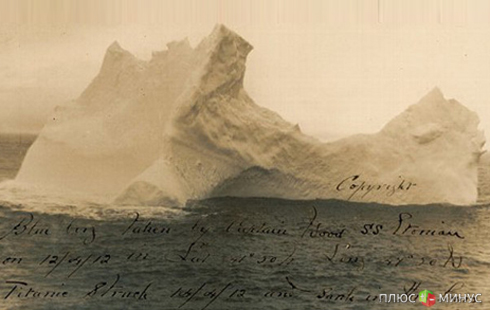 Copyright
Blue berg Taken by Captain Wood SS Etonian
on 12/4/12 in Lat 41° 50 W Lon 49° 50 N
Titanic Struck 14/4/12 and sank in
ПЛЮС МИНУС